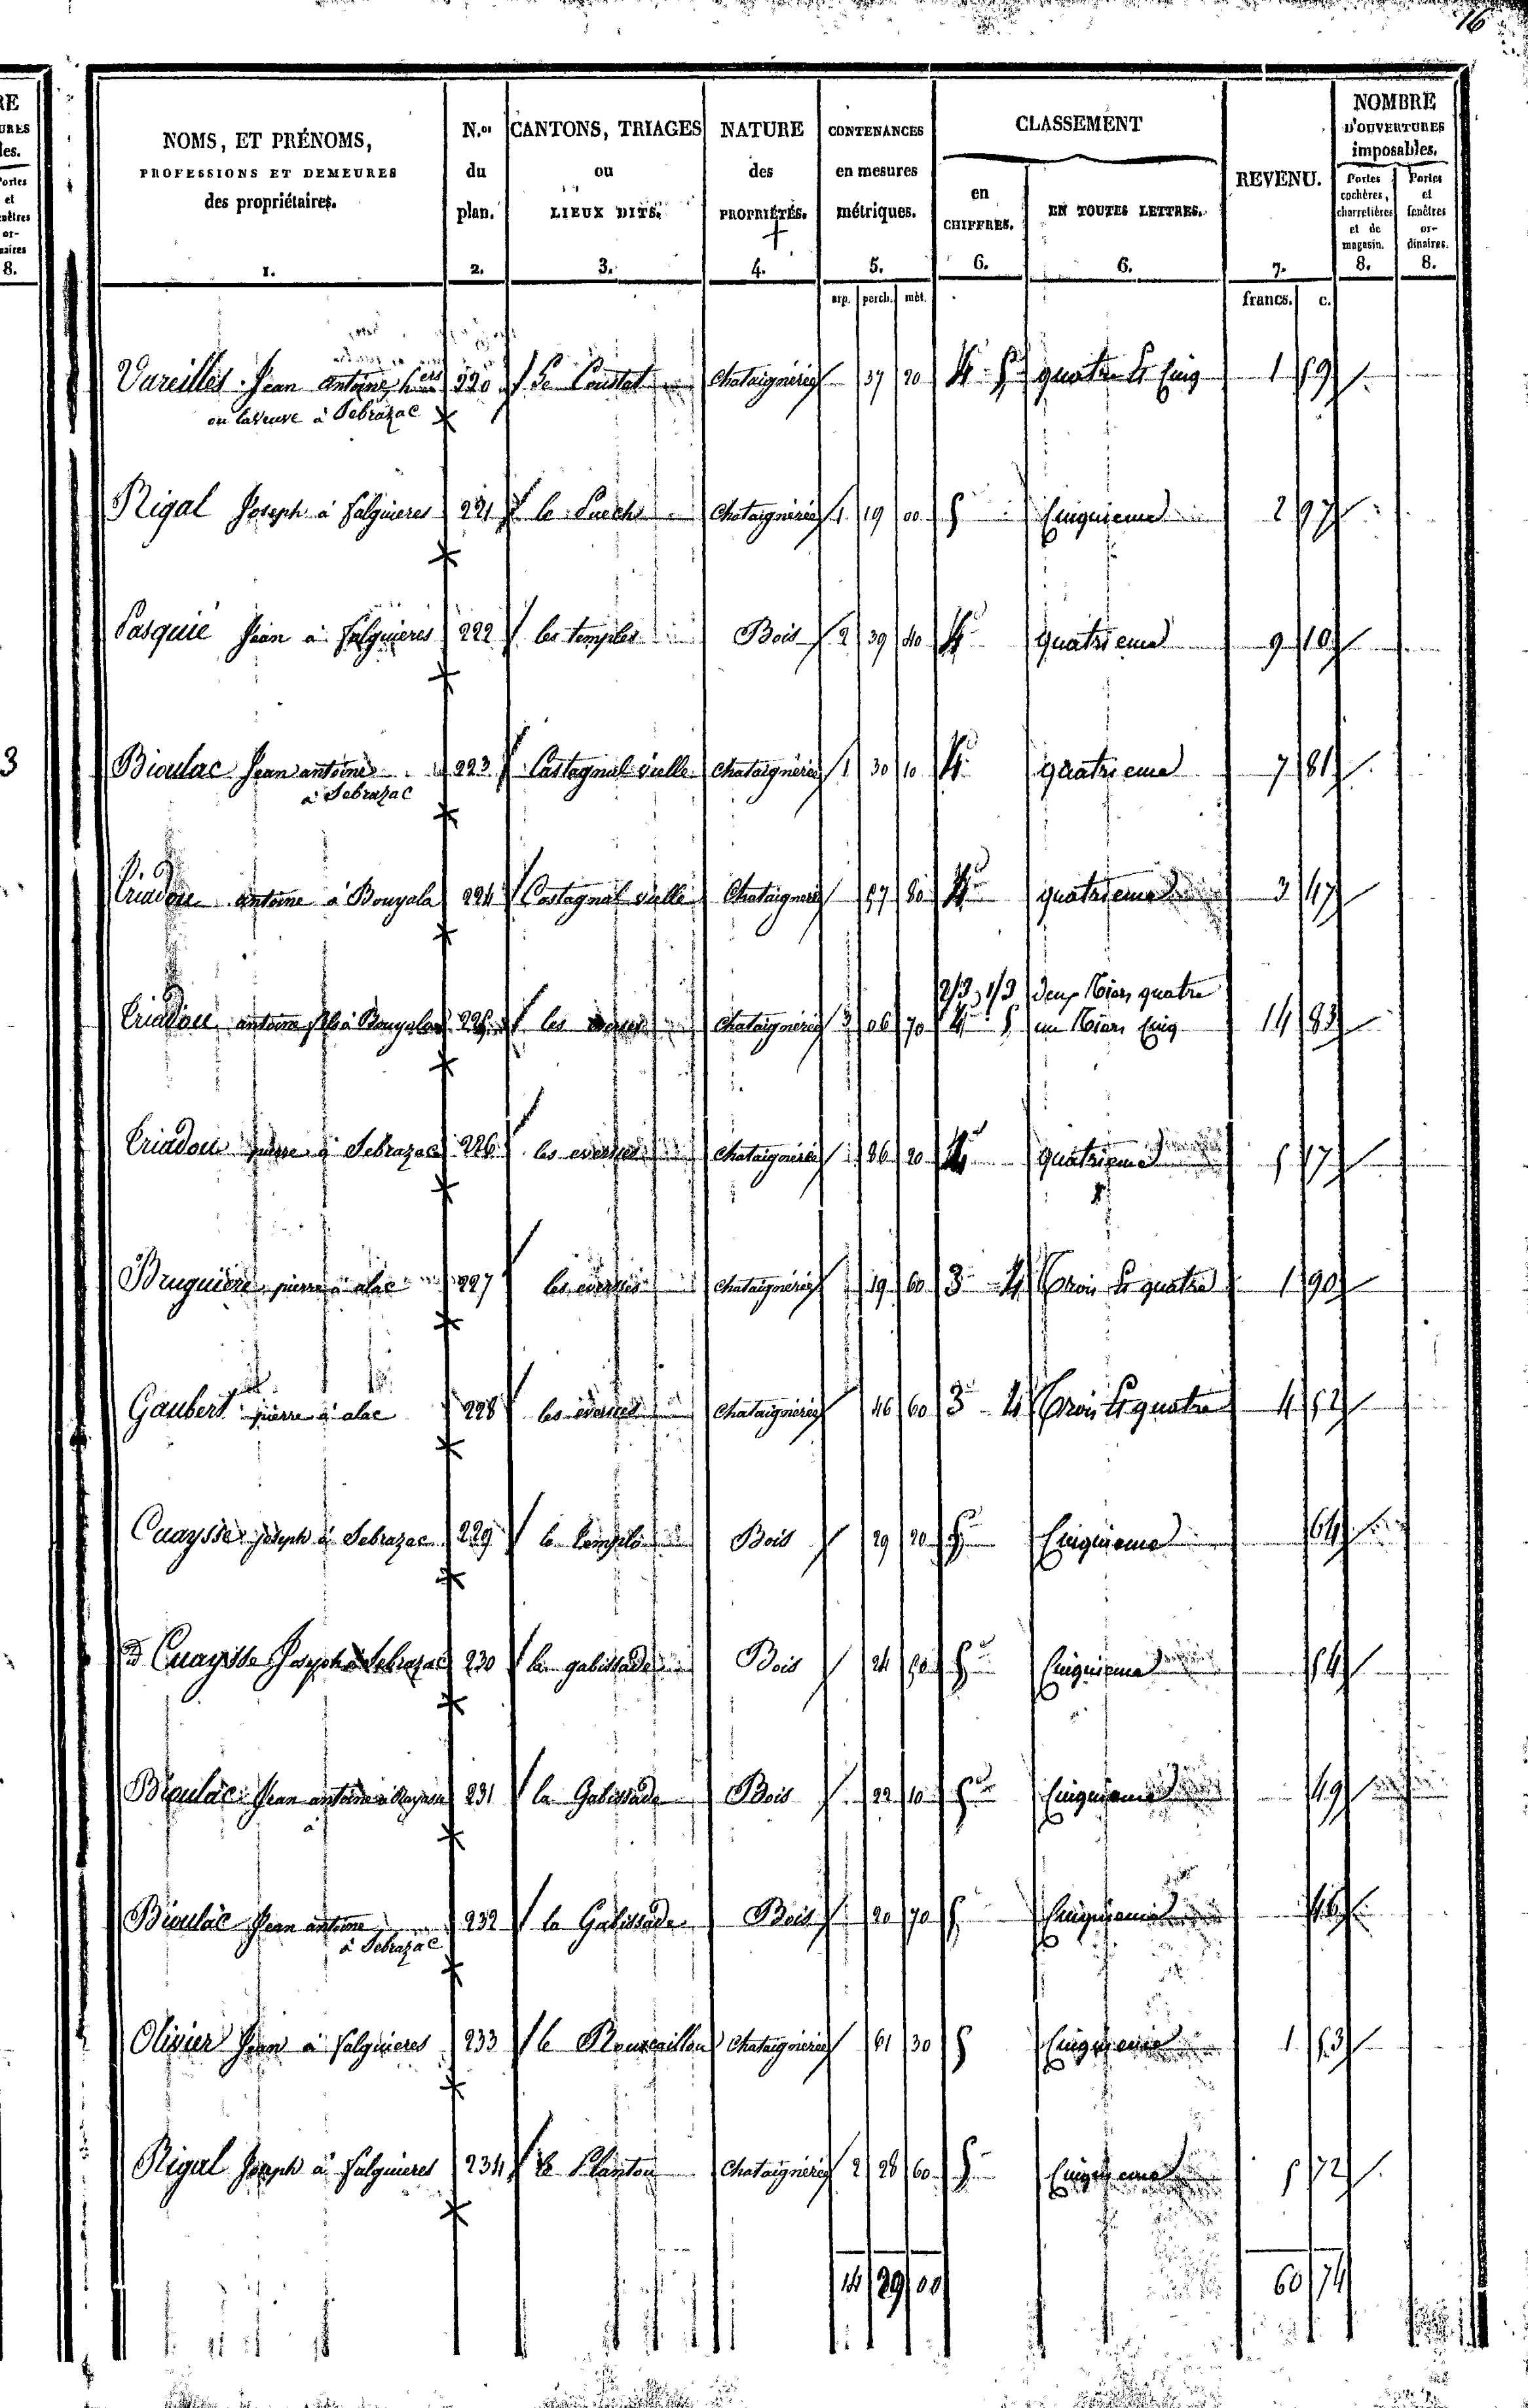 16
NOMS, ET PRÉNOMS, PROFESSIONS ET DEMEURES des propriétaires. 1.
N.os du plan. 2.
CANTONS, TRIAGES ou LIEUX DITS. 3.
NATURE des PROPRIÉTÉS. 4.
CONTENANCES en mesures métriques. 5.
CLASSEMENT
en CHIFFRES. 6.
EN TOUTES LETTRES. 6.
REVENU. 7.
NOMBRE D'OUVERTURES imposables.
Portes cochères, charretières et de magasin. 8.
Portes et fenêtres ordinaires. 8.
arp. perch. mèt. francs. c.
Vareilles Jean antoine hers 220 Le Coustat Chataigneraie 37 20 4 5 quatre et Cinq 1 59
ou la veuve à Sebrazac
Rigal Joseph à falguieres 221 le Puech Chataigneraie 1 19 00 5 Cinquieme 2 97
Pasquié Jean à falguieres 222 les temples Bois 2 39 40 4 quatrieme 9 10
Bioulac Jean antoine 223 Castagnal vielle Chataigneraie 1 30 10 4 quatrieme 7 81
à Sebrazac
Triadou antoine à Bouyala 224 Castagnal vielle Chataigneraie 57 80 4 quatrieme 3 47
2/3, 1/3 deux tiers quatre
Triadou antoine fils à 225 les Chataigneraie 3 06 70 4 5 un tiers Cinq 14 83
Triadou pierre à Sebrazac 226 les Chataigneraie 86 20 4 quatrieme 5 17
Bruguiere pierre à alac 227 les Chataigneraie 19 60 3 4 trois et quatre 1 90
Gaubert pierre à alac 228 les Chataigneraie 46 60 3 4 trois et quatre 4 52
Cuaysse joseph à Sebrazac 229 le temple Bois 29 20 5 Cinquieme 64
Cuaysse Joseph à Sebrazac 230 la gabissade Bois 24 50 5 Cinquieme 54
Bioulac Jean antoine à 231 la Gabissade Bois 22 10 5 Cinquieme 49
Bioulac Jean antoine 232 la Gabissade Bois 20 70 5 Cinquieme 46
à Sebrazac
Olivier Jean à falguieres 233 le Roucaillou Chataigneraie 61 30 5 Cinquieme 1 53
Rigal Joseph à falguieres 234 le Planton Chataigneraie 2 28 60 5 Cinquieme 5 72
14 29 00 60 74